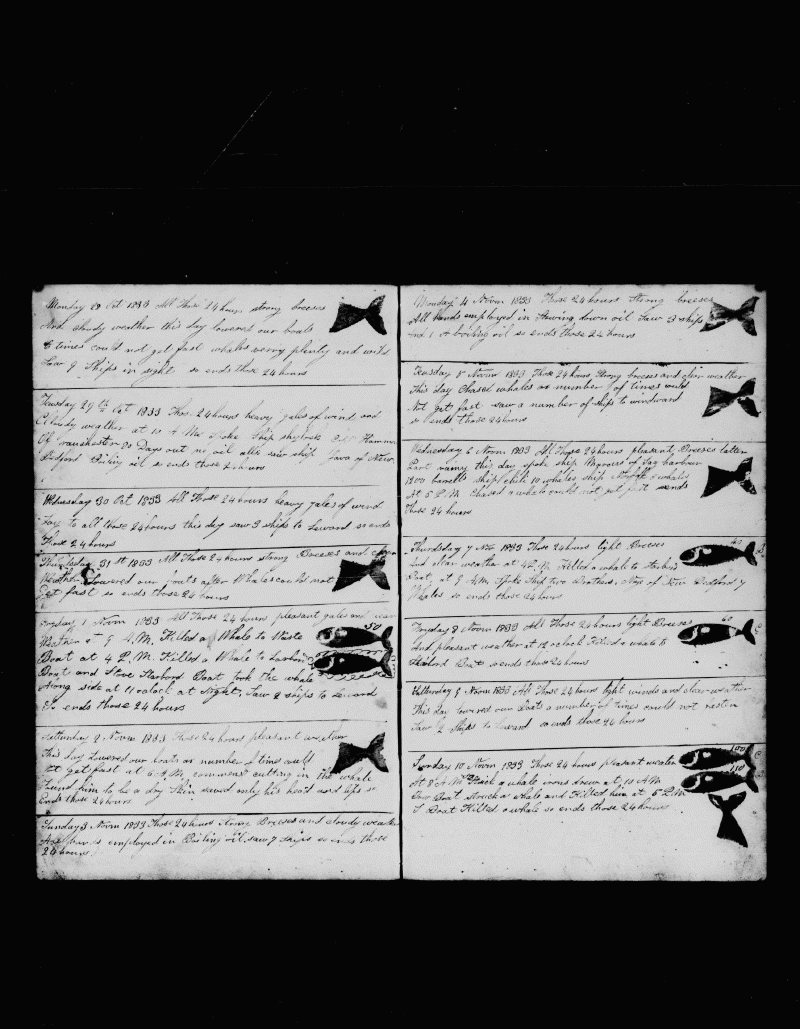 Monday 28 Oct 1833 All Those 24 hours strong breeses
And cloudy weather this day lowered our boats
6 times could not get fast whales verry plenty and wild
Saw 9 Ships in sight so ends those 24 hours
Tuesday 29th Oct 1833 Thos. 24 hours heavy gales of wind and
Cloudy weather at 10 A M Spoke Ship
Of 20 Days out no oil allso saw ship Java of New
Bedford Boiling oil so ends those 24 hours
Wednesday 30 Oct 1833 All Those 24 hours heavy gales of wind
Lay to all those 24 hours this day saw 3 ships to Leward so ends
Those 24 hours
Thursday 31 st 1833 All Those 24 hours strong Breeses and clear
Weather Lowered our boats after Whales could not
Get fast so ends those 24 hours
Fryday 1 Novm 1833 All Those 24 hours pleasant gales and clear
Weather at 9 A.M. Killed a Whale to Waste
50
Boat at 4 P.M. Killed a Whale to Larbord
Boat and Stove Starbord Boat took the whale
Along side at 11 oclock at Night. Saw 2 ships to Leward
So ends those 24 hours
Satterday 2 Novm 1833 Those 24 hours pleasant weather
This day Lowered our boats a number of times could
Not get fast at 6 A.M. commenc cutting in the whale
Found him to be a dry Skin saved only his head and lips so
Ends those 24 hours
Sunday 3 Novm 1833 Those 24 hours Strong Breeses and cloudy weather
All hands employed in Boiling oil saw 7 ships so ends those
24 hours
Monday 4 Novm 1833 Those 24 hours Strong breeses
All hands employed in Stowing down oil Saw 3 ships
And 1 A boiling oil so ends those 24 hours
Tuesday 5 Novm 1833 Those 24 hours Strong breeses and clear weather
This day Chased whales a number of times could
Not get fast saw a number of ships to windward
So ends those 24 hours
Wednesday 6 Novm 1833 All Those 24 hours pleasant Breeses latter
Part rainy this day spoke ship of Sag harbour
1200 barrells Ship 10 whales ship 8 whales
At 5 P.M. Chased a whale could not get fast so ends
Those 24 hours
Thursday 7 Nov 1833 Those 24 hours light Breeses
40
And clear weather at 4 P.M. Killed a whale to Starbord
Boat, at 9 A.M. Spoke Ship two Brothers, of New Bedford 7
Whales so ends those 24 hours
Fryday 8 Novm 1833 All Those 24 hours light Breeses
60
And pleasant weather at 12 oclock Killed a whale to
Starbord Boat so ends those 24 hours
Satterday 9 Novm 1833 All Those 24 hours light winds and clear weather
This day lowered our Boats a number of times could not fasten
Saw 2 Ships to Leward so ends those 24 hours
Sunday 10 Novm 1833 Those 24 hours pleasant weather
100
At 8 A.M. Struck a whale irons drew at 10 A.M.
110
Bow Boat Struck a whale and Killed him at 5 P.M.
Boat Killed a whale so ends those 24 hours